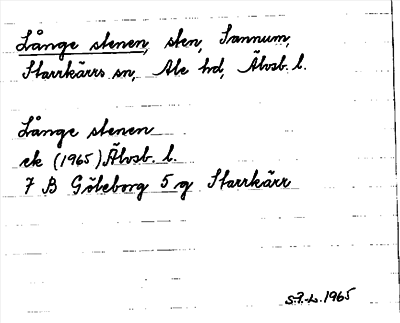 Långe stenen, sten, Sannum,
Starrkärrs sn, Ale hd, Älvsb. l.
Långe stenen
ek (1965) Älvsb. l.
7 B Göteborg 5 g Starrkärr
1965